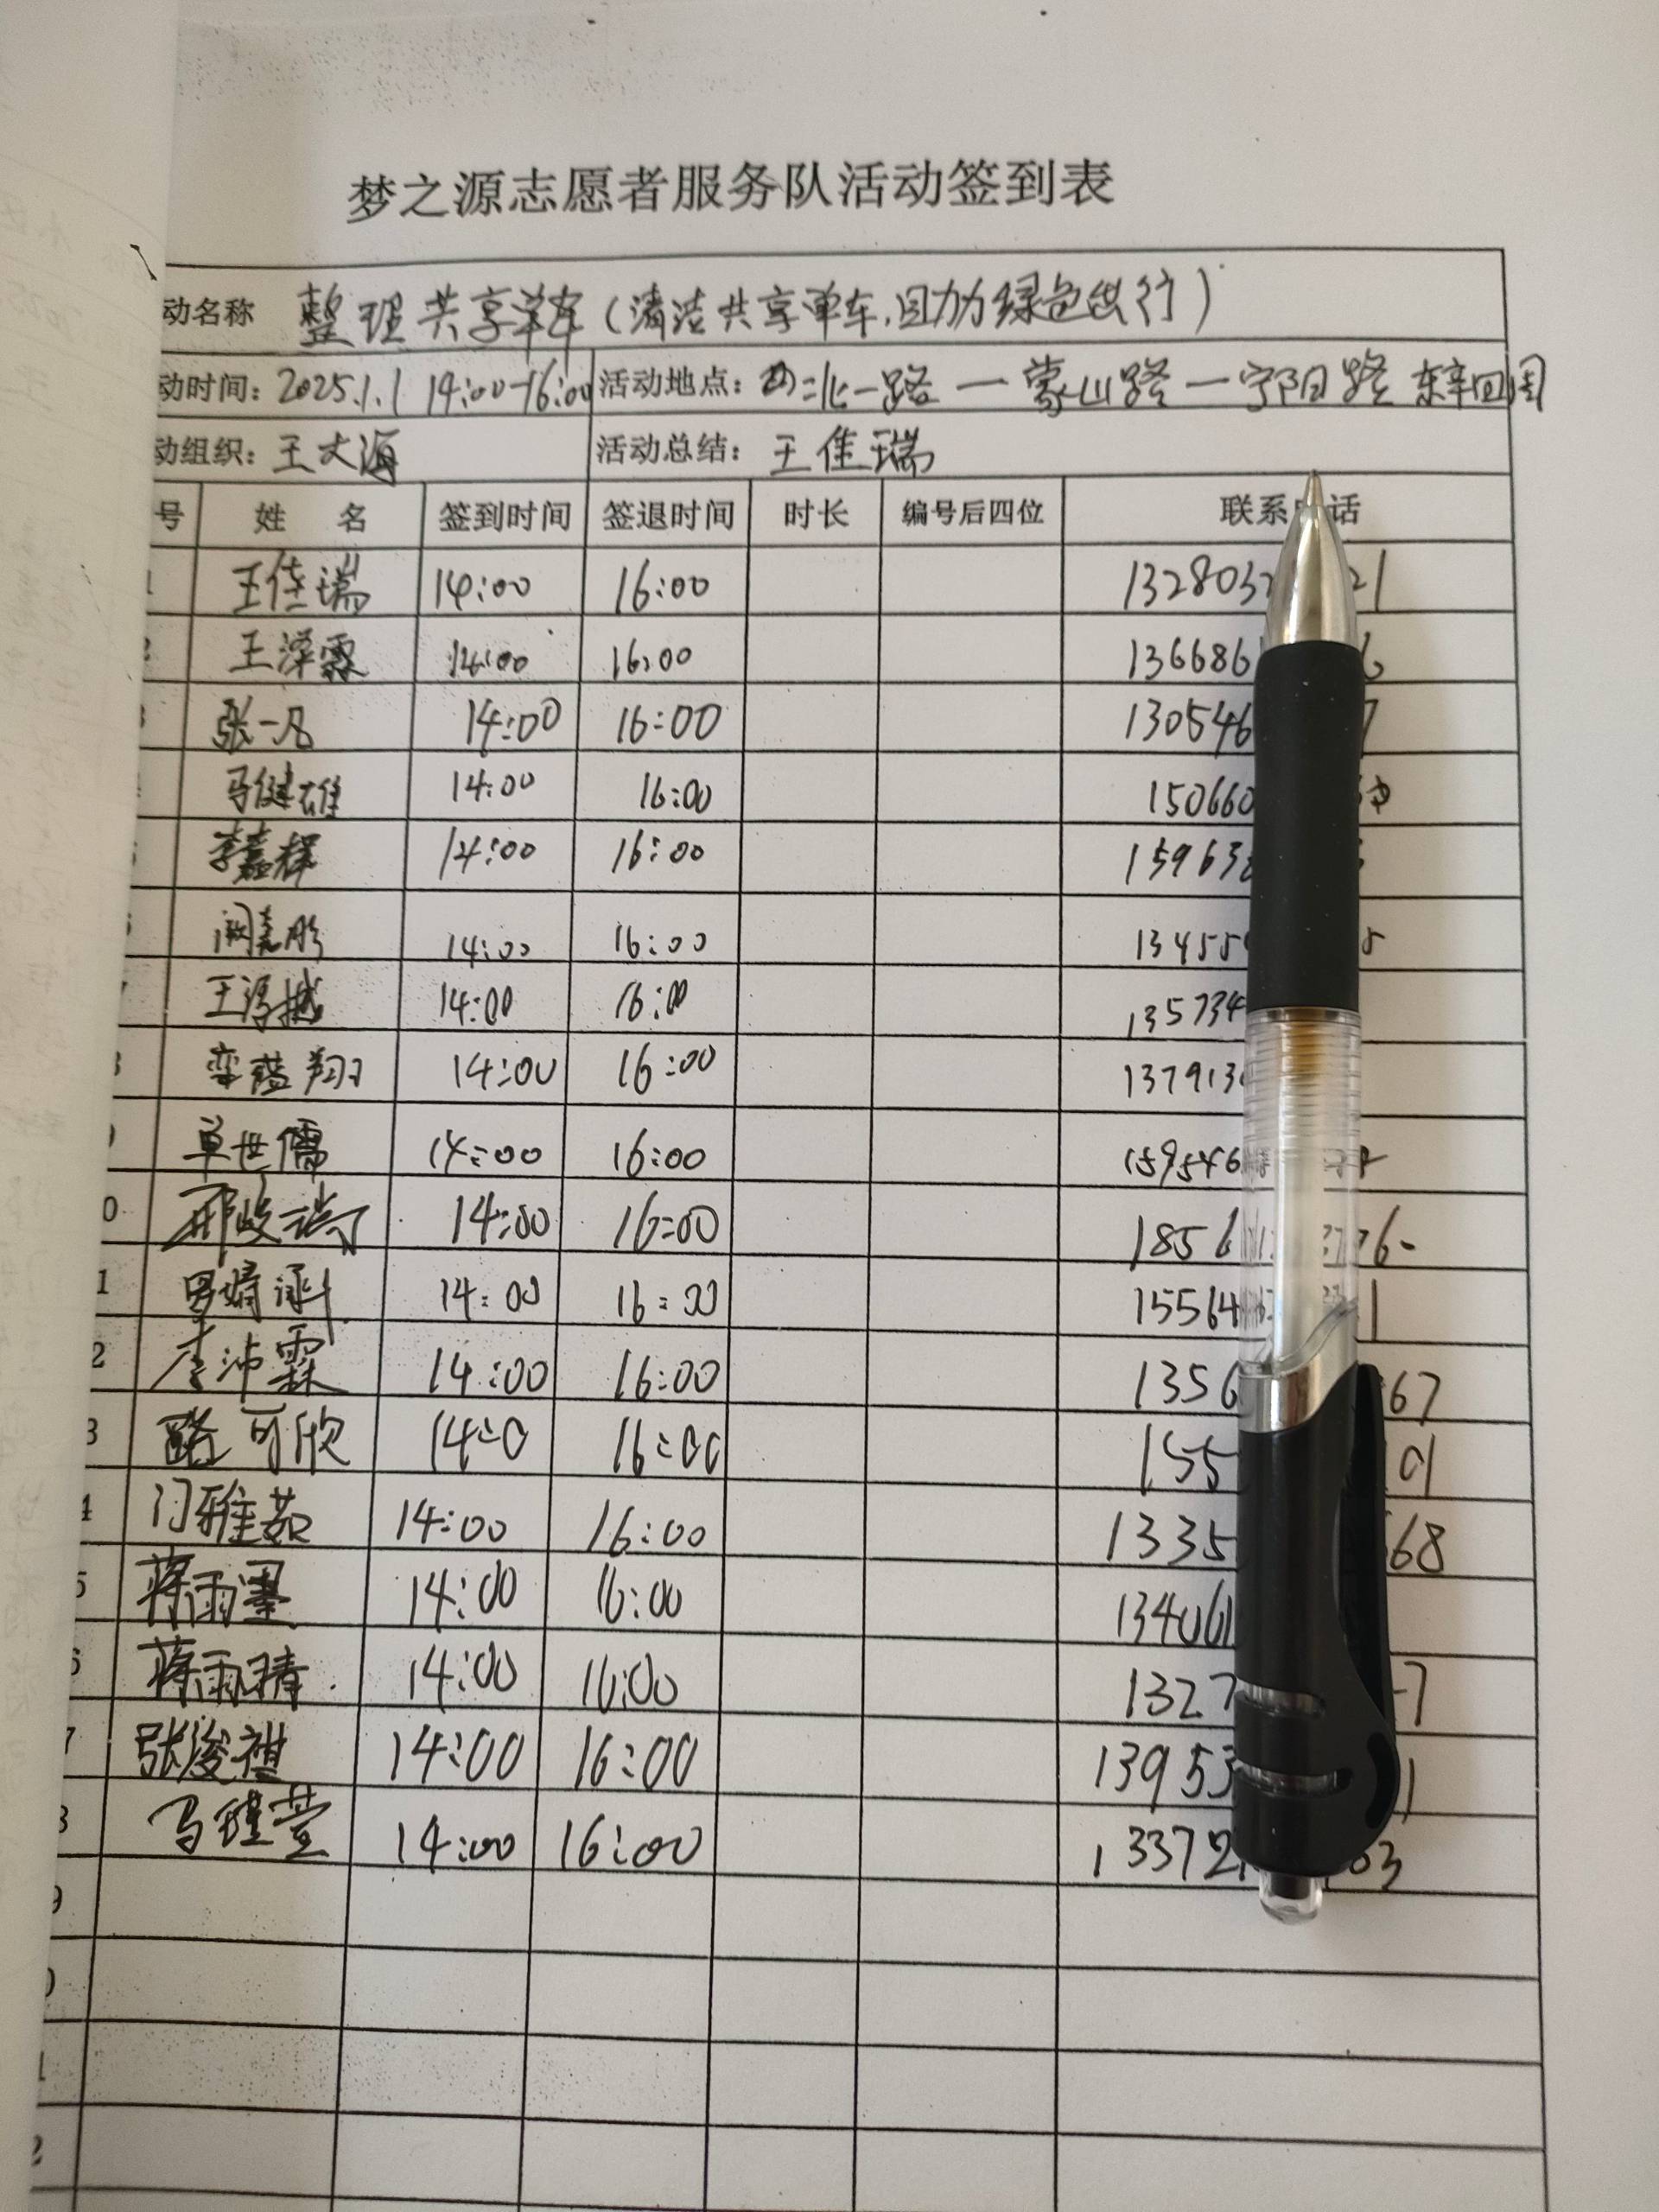 梦之源志愿者服务队活动签到表
动名称 整理共享单车(清洁共享单车,助力绿色出行)
动时间: 2025.1.1 14:00-16:00 活动地点: 西二北一路—蒙山路—宁阳路 东辛四周
动组织: 王文源 活动总结: 王佳瑞
号 姓 名 签到时间 签退时间 时长 编号后四位 联系 话
1 王佳瑞 14:00 16:00 132803 21
2 王泽霖 14:00 16:00 136686 6
3 张一凡 14:00 16:00 130546 7
马健雄 14:00 16:00 150660
5 李嘉辉 14:00 16:00 15963
嘉彤 14:00 16:00 13455 5
7 王淳 14:00 16:00 135734
8 栾蓝翔 14:00 16:00 137913
9 单世儒 14:00 16:00 159546
0 邢峻瑞 14:00 16:00 1856 76
1 14:00 16:00 15564 1
2 李沛霖 14:00 16:00 1356 67
3 可欣 14:0 16:00 155 01
4 门雅茹 14:00 16:00 1335 668
5 蒋雨墨 14:00 16:00 134061
6 蒋雨晴 14:00 16:00 1327 7
7 张俊祺 14:00 16:00 13953 1
8 马瑾萱 14:00 16:00 13372 63
9
0
1
2